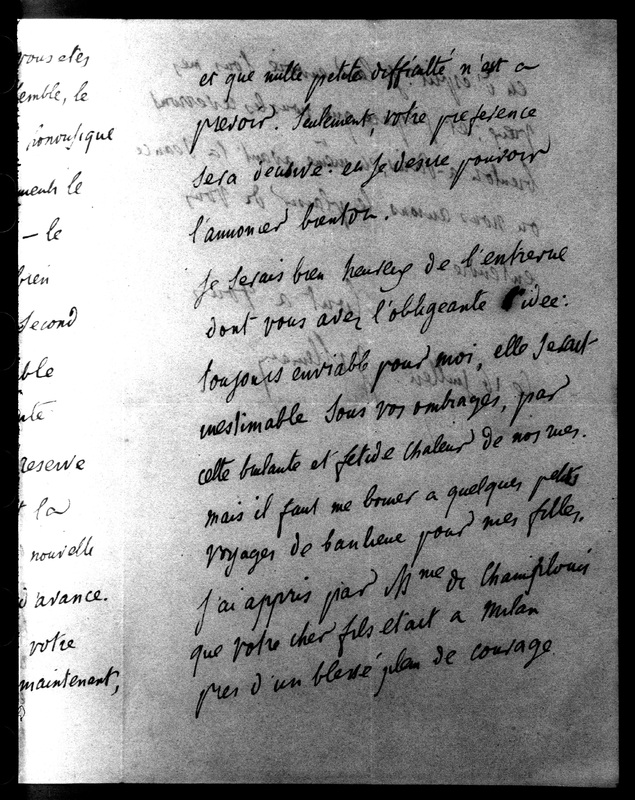 vous etes
semble, le
honorifique
ments le
— le
bien
second
ble
nte
reserve
t la
nouvelle
d'avance.
votre
maintenant,
et que nulle petite difficulté n'est a
prevoir. Seulement, votre preference
sera decisive: en je desire pouvoir
l'annoncer bientot.
Je serais bien heureux de l'entrevue
dont vous avez l'obligeante idee:
toujours enviable pour moi, elle serait
inestimable sous vos ombrages, par
cette brulante et fetide chaleur de nos rues.
mais il faut me borner a quelques petits
voyages de banlieue pour mes filles.
J'ai appris par Mme de Champlouis
que votre cher fils etait a Milan
pres d'un blessé plein de courage